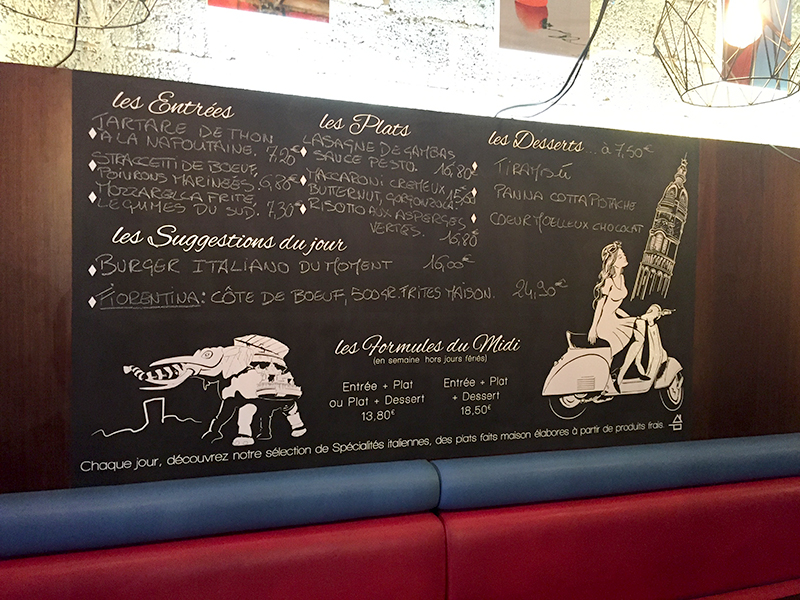 les Entrées
TARTARE DE THON
A LA NAPOLITAINE. 7,20€
STRACCETTI DE BOEUF,
POIVRONS MARINÉES, 6,80€
MOZZARELLA FRITE,
LEGUMES DU SUD. 7,30€
les Plats
LASAGNE DE GAMBAS
SAUCE PESTO. 16,80€
MACARONI CREMEUX
BUTTERNUT, GORGONZOLA.
RISOTTO AUX ASPERGES
VERTES. 15,80€
les Desserts ... à 7,50€
TIRAMISÚ
PANNA COTTA PISTACHE
COEUR MOELLEUX CHOCOLAT
les Suggestions du jour
BURGER ITALIANO DU MOMENT 16,00€
FIORENTINA : CÔTE DE BOEUF, 500GR. FRITES MAISON. 24,90€
les Formules du Midi
(en semaine hors jours fériés)
Entrée + Plat
ou Plat + Dessert
13,80€
Entrée + Plat
+ Dessert
18,50€
Chaque jour, découvrez notre sélection de Spécialités italiennes, des plats faits maison élabores à partir de produits frais.